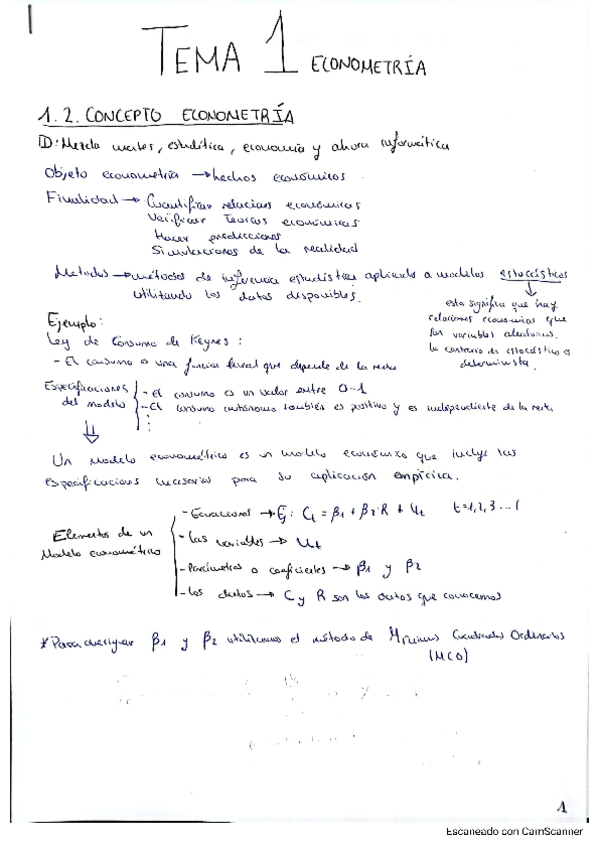 TEMA 1 ECONOMETRÍA
1.2. CONCEPTO ECONOMETRÍA
D: Mezcla mates, estadística, economía y ahora informática
Objeto econometría → hechos económicos.
Finalidad → Cuantificar relaciones económicas
Verificar Teorías económicas
Hacer predicciones
Simulaciones de la realidad
Metodos → métodos de inferencia estadística aplicado a modelos estocásticos
utilizando los datos disponibles.
esto significa que hay
relaciones económicas que
son variables aleatorias.
lo contrario de estocástico es
determinista.
Ejemplo:
Ley de Consumo de Keynes:
- El consumo es una función lineal que depende de la renta
Especificaciones
del modelo
- El consumo es un valor entre 0-1
- El consumo autónomo también es positivo y es independiente de la renta
Un modelo econométrico es un modelo económico que incluye las
especificaciones necesarias para su aplicación empírica.
Elementos de un
Modelo econométrico
- Ecuaciones → Ej: Ct = β1 + β2·R + Ut t=1,2,3...T
- Las variables → Ut
- Parámetros o coeficientes → β1 y β2
- Los datos → C y R son los datos que conocemos
* Para averiguar β1 y β2 utilizamos el método de Mínimos Cuadrados Ordinarios
(MCO)
1
Escaneado con CamScanner